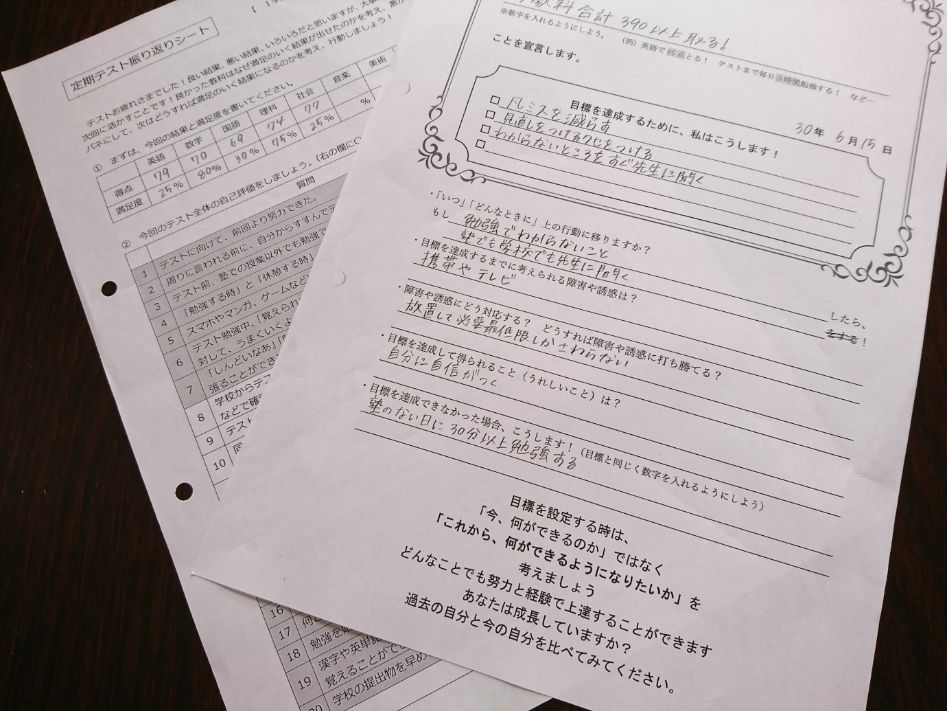 定期テスト振り返りシート
テストお疲れさまでした！良い結果、悪い結果、いろいろだと思いますが、大事
次回に活かすことです！良かった教科はなぜ満足のいく結果が出せたのかを考え、悪か
バネにして、次はどうすれば満足のいく結果になるのかを考え、行動しましょう！
① まずは、今回の結果と満足度を書いてください。
英語 数学 国語 理科 社会 音楽 美術
得点 79 70 69 74 77
満足度 25% 80% 30% 75% 25% %
② 今回のテスト全体の自己評価をしましょう。（右の欄に
質問
1 テストに向けて、前回より努力できた。
2 周りに言われる前に、自分からすすんで
3 テスト前、塾での授業以外でも勉強で
4 「勉強する時」と「休憩する時」
5 スマホやマンガ、ゲームなど
6 テスト勉強中、「覚えられ
対して、うまくいくよ
7 「しんどいなあ」
張ることができ
8 学校からテス
などで確
9 テスト
10 同
16
17 何
18 勉強を
19 漢字や英単語
覚えることができ
20 学校の提出物を早め
教科合計 390以上取る！
※数字を入れるようにしよう。 （例）英語で85点とる！ テストまで毎日3時間勉強する！ など…
ことを宣言します。
30年 6月15日
目標を達成するために、私はこうします！
□ 凡ミスを減らす
□ 見直しをつけるクセをつける
□ わからないところをすぐ先生に聞く
□
・「いつ」「どんなときに」上の行動に移りますか？
もし 勉強でわからないこと したら、
塾でも学校でも先生に聞く をする！
・目標を達成するまでに考えられる障害や誘惑は？
携帯やテレビ
・障害や誘惑にどう対応する？ どうすれば障害や誘惑に打ち勝てる？
放置して必要最低限しかさわらない
・目標を達成して得られること（うれしいこと）は？
自分に自信がつく
・目標を達成できなかった場合、こうします！（目標と同じく数字を入れるようにしよう）
塾のない日に30分以上勉強する
目標を設定する時は、
「今、何ができるのか」ではなく
「これから、何ができるようになりたいか」を
考えましょう
どんなことでも努力と経験で上達することができます
あなたは成長していますか？
過去の自分と今の自分を比べてみてください。